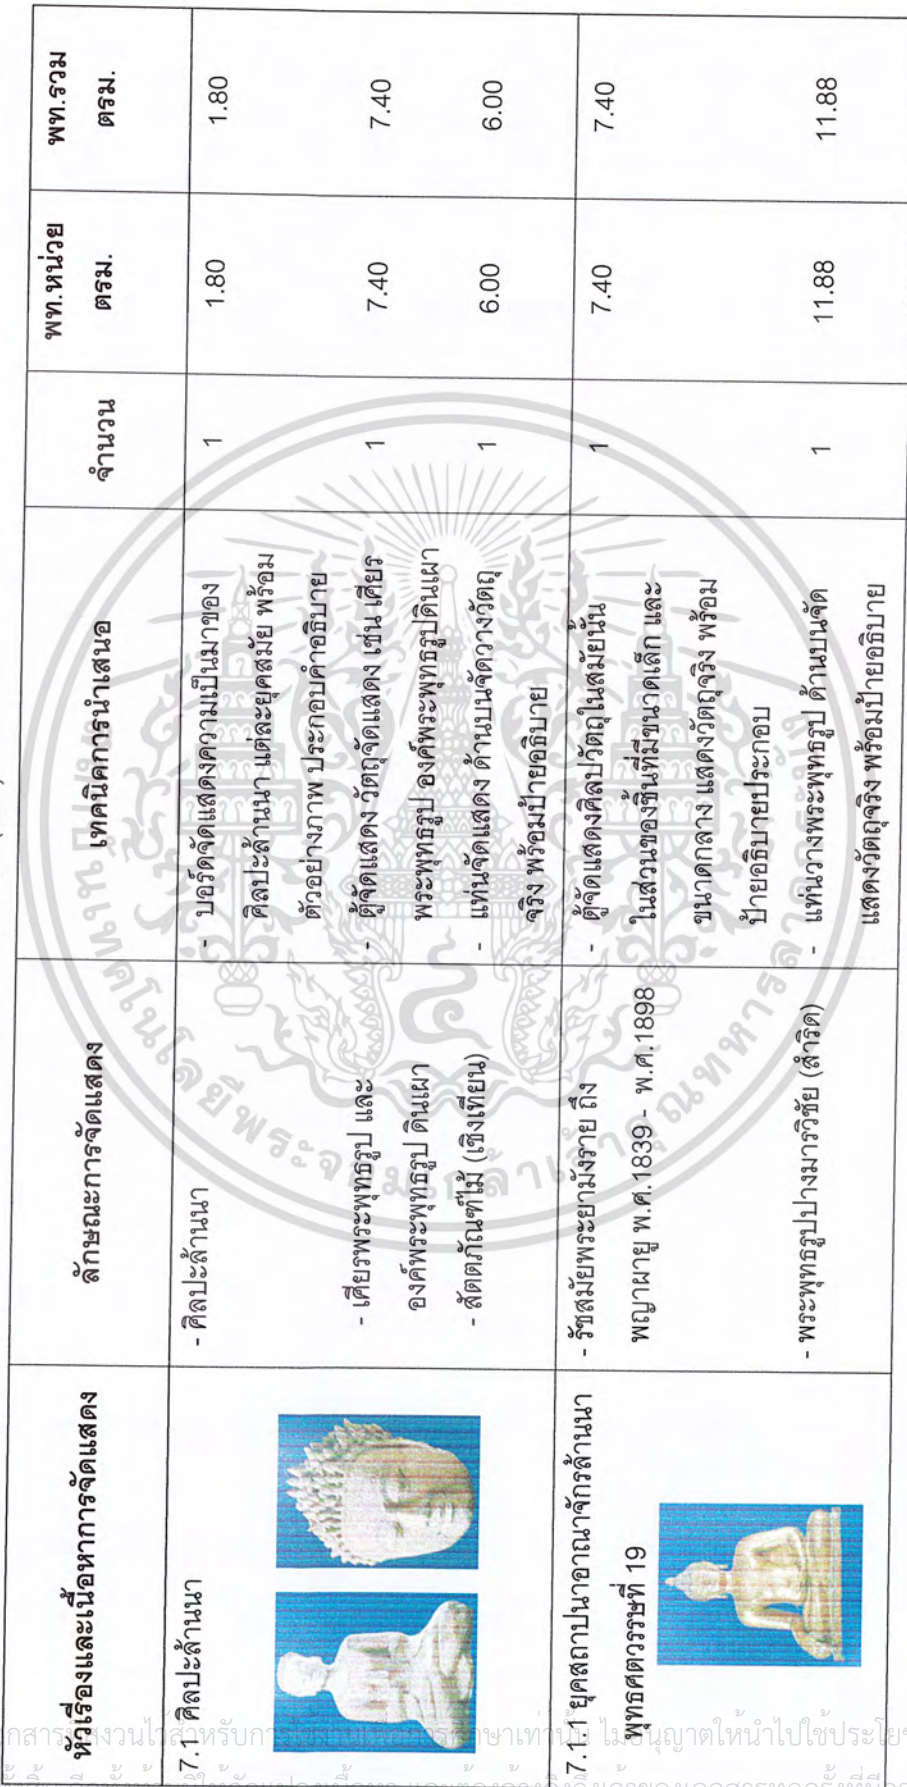 หัวเรื่องและเนื้อหาการจัดแสดง
ลักษณะการจัดแสดง
เทคนิคการนำเสนอ
จำนวน
พท.หน่วย
ตรม.
พท.รวม
ตรม.
7.1 ศิลปะล้านนา
- ศิลปะล้านนา
- บอร์ดจัดแสดงความเป็นมาของ
ศิลปะล้านนา แต่ละยุคสมัย พร้อม
ตัวอย่างภาพ ประกอบคำอธิบาย
1
1.80
1.80
- เศียรพระพุทธรูป และ
องค์พระพุทธรูป ดินเผา
- ตู้จัดแสดง วัตถุจัดแสดง เช่น เศียร
พระพุทธรูป องค์พระพุทธรูปดินเผา
1
7.40
7.40
- สัตตภัณฑ์ไม้ (เชิงเทียน)
- แท่นจัดแสดง ด้านบนจัดวางวัตถุ
จริง พร้อมป้ายอธิบาย
1
6.00
6.00
7.1.1 ยุคสถาปนาอาณาจักรล้านนา
พุทธศตวรรษที่ 19
- รัชสมัยพระยามังราย ถึง
พญาผายู พ.ศ.1839 - พ.ศ.1898
- ตู้จัดแสดงศิลปวัตถุในสมัยนั้น
ในส่วนของชิ้นที่มีขนาดเล็ก และ
ขนาดกลาง แสดงวัตถุจริง พร้อม
ป้ายอธิบายประกอบ
1
7.40
7.40
- พระพุทธรูปปางมารวิชัย (สำริด)
- แท่นวางพระพุทธรูป ด้านบนจัด
แสดงวัตถุจริง พร้อมป้ายอธิบาย
1
11.88
11.88